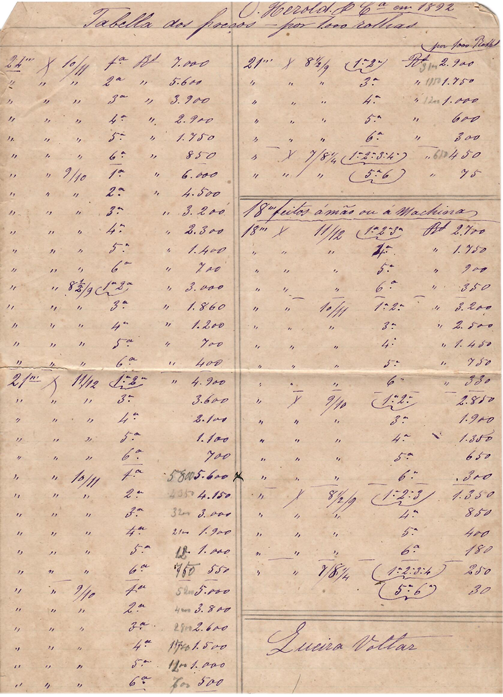 O. Herold & Cª em 1892
Tabella dos preços por 1000 rolhas
24ᵐ X 10/11 1ª Rˢ 7.000
" " " 2ª " 5.600
" " " 3ª " 3.900
" " " 4ª " 2.900
" " " 5ª " 1.750
" " " 6ª " 850
" " 9/10 1ª " 6.000
" " " 2ª " 4.500
" " " 3ª " 3.200
" " " 4ª " 2.300
" " " 5ª " 1.400
" " " 6ª " 700
" " 8½/9 1ª 2ª " 3.000
" " " 3ª " 1.860
" " " 4ª " 1.200
" " " 5ª " 700
" " " 6ª " 400
21ᵐ X 11/12 1ª 2ª " 4.900
" " " 3ª " 3.600
" " " 4ª " 2.100
" " " 5ª " 1.100
" " " 6ª " 700
" " 10/11 1ª 5800 5.600 x
" " " 2ª 4.150
" " " 3ª 3200 3.000
" " " 4ª 2100 1.900
" " " 5ª 1.000
" " " 6ª 750 550
" " 9/10 1ª 5200 5.000
" " " 2ª 4000 3.800
" " " 3ª 2800 2.600
" " " 4ª 1700 1.500
" " " 5ª 1200 1.000
" " " 6ª 600 500
por 1000 Rolhˢ
21ᵐ X 8½/9 1ª 2ª Rˢ 2.900
" " " 3ª 1.750
" " " 4ª 1200 1.000
" " " 5ª " 600
" " " 6ª " 300
" X 7/8¼ 1ª 2ª 3ª 4ª " 450
" " " 5ª 6ª " 75
18ᵐ feitos á mão ou a Machina
18ᵐ X 11/12 1ª 2ª 3ª Rˢ 2.700
" " " 4ª " 1.750
" " " 5ª " 900
" " " 6ª " 350
" " 10/11 1ª 2ª " 3.200
" " " 3ª " 2.500
" " " 4ª " 1.450
" " " 5ª " 750
" " " 6ª " 330
" X 9/10 1ª 2ª " 2.850
" " " 3ª " 1.900
" " " 4ª " 1.350
" " " 5ª " 650
" " " 6ª " .300
" X 8½/9 1ª 2ª 3ª 1.350
" " " 4ª " 850
" " " 5ª " 400
" " " 6ª " 180
" " 7/8¼ 1ª 2ª 3ª 4ª 250
5ª 6ª 30
Queira Voltar